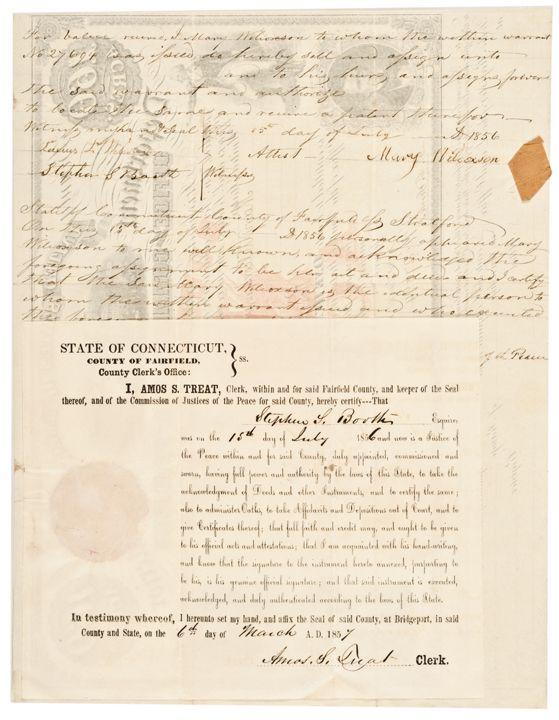 For value receive, I Mary Wilcoxson to whom the within warrant
No 27694 was issued do hereby sell and assign unto
and to his heirs and assigns forever
the said warrant and authorize
to locate the same and receive a patent therefor
Witness my hand & Seal this 15th day of July AD 1856
Attest Mary Wilcoxson
Stephen S Booth } Witnesses
State of Connecticut County of Fairfield Ss Stratford
On this 15th day of July AD 1856 personally appeared Mary
Wilcoxson to me well known, and acknowledged the
foregoing assignment to be her act and deed and I certify
that the said Mary Wilcoxson is the identical person to
whom the within warrant issued and who executed
of the Peace
STATE OF CONNECTICUT, }
COUNTY OF FAIRFIELD, } ss.
County Clerk's Office: }
I, AMOS S. TREAT, Clerk, within and for said Fairfield County, and keeper of the Seal
thereof, and of the Commission of Justices of the Peace for said County, hereby certify---That
Stephen S. Booth Esquire,
was on the 15th day of July 1856 and now is a Justice of
the Peace within and for said County, duly appointed, commissioned and
sworn, having full power and authority by the laws of this State, to take the
acknowledgment of Deeds and other Instruments, and to certify the same;
also to administer Oaths, to take Affidavits and Depositions out of Court, and to
give Certificates thereof; that full faith and credit may, and ought to be given
to his official acts and attestations; that I am acquainted with his hand-writing,
and know that the signature to the instrument hereto annexed, purporting to
be his, is his genuine official signature; and that said instrument is executed,
acknowledged, and duly authenticated according to the laws of this State.
In testimony whereof, I hereunto set my hand, and affix the Seal of said County, at Bridgeport, in said
County and State, on the 6th day of March A. D. 1857
Amos. S. Treat Clerk.